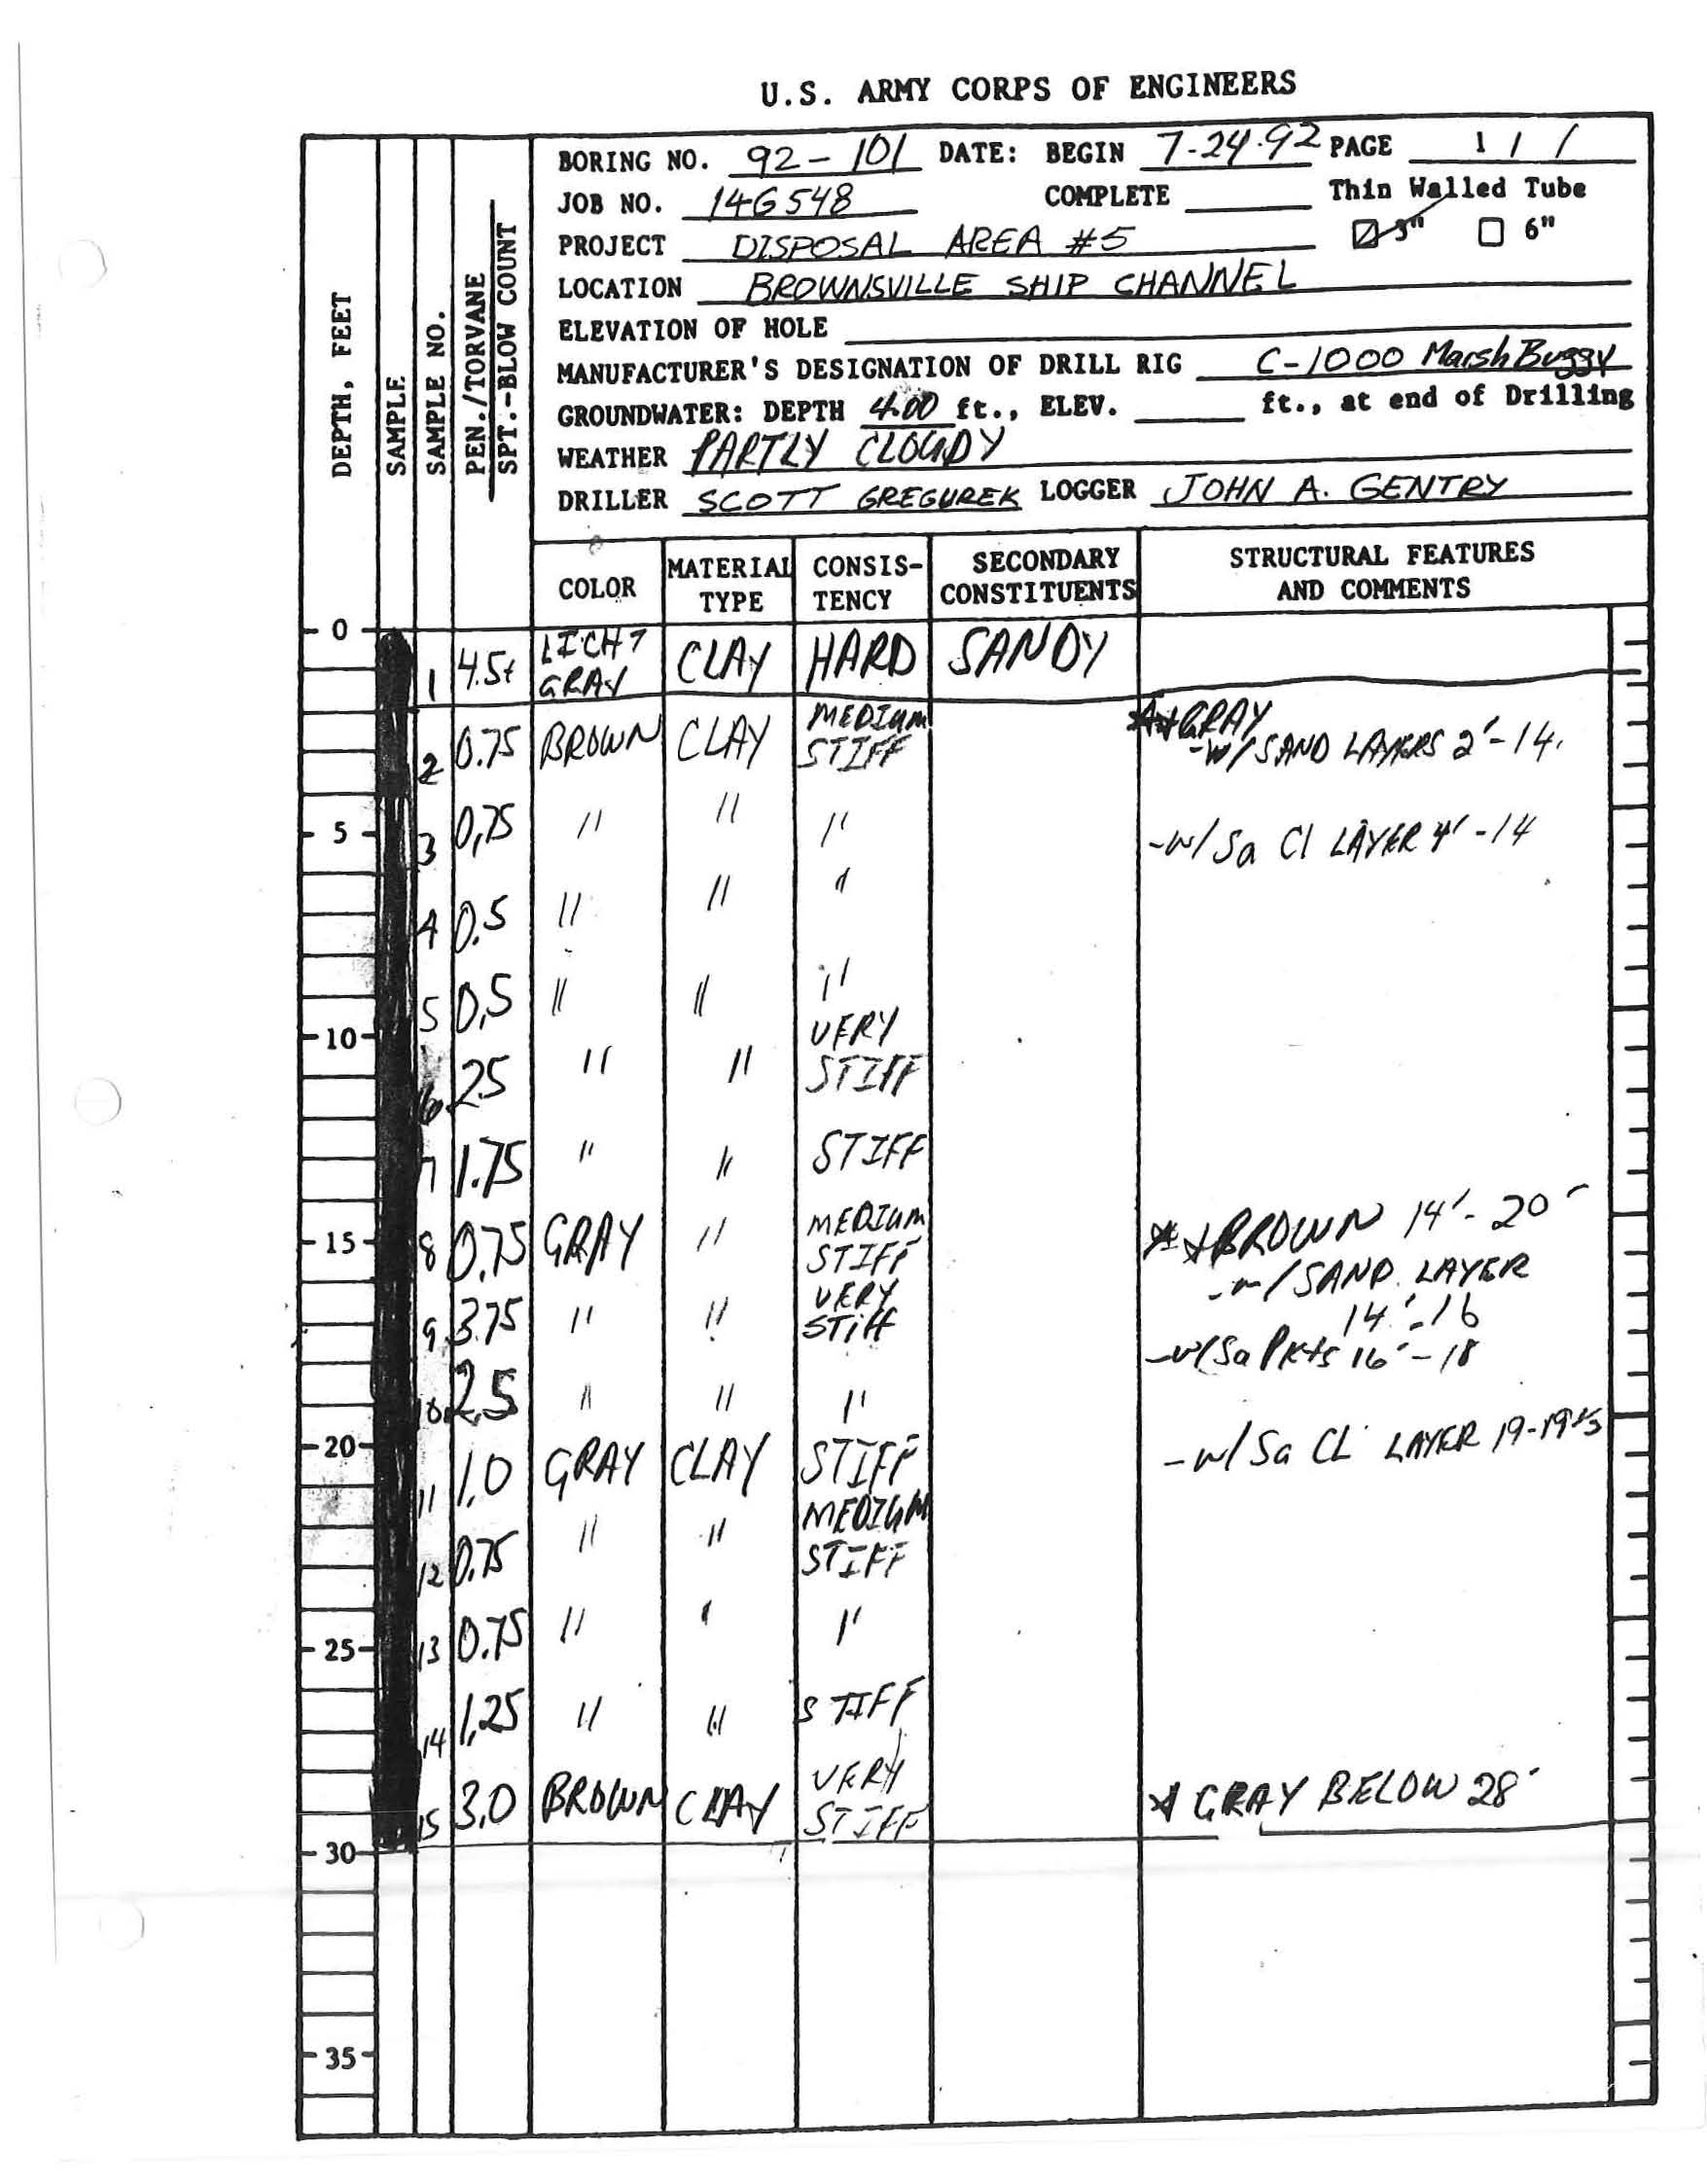 U.S. ARMY CORPS OF ENGINEERS
DEPTH, FEET
SAMPLE
SAMPLE NO.
PEN./TORVANE
SPT.-BLOW COUNT
BORING NO. 92-101 DATE: BEGIN 7-24-92 PAGE 1 / 1
JOB NO. 14G548 COMPLETE Thin Walled Tube
☑ 3" ☐ 6"
PROJECT DISPOSAL AREA #5
LOCATION BROWNSVILLE SHIP CHANNEL
ELEVATION OF HOLE
MANUFACTURER'S DESIGNATION OF DRILL RIG C-1000 Marsh Buggy
GROUNDWATER: DEPTH 4.00 ft., ELEV. ft., at end of Drilling
WEATHER PARTLY CLOUDY
DRILLER SCOTT GREGUREK LOGGER JOHN A. GENTRY
COLOR MATERIAL TYPE CONSIS-TENCY SECONDARY CONSTITUENTS STRUCTURAL FEATURES AND COMMENTS
0
1 4.5+ LIGHT GRAY CLAY HARD SANDY
2 0.75 BROWN CLAY MEDIUM STIFF **GRAY
-W/SAND LAYERS 2'-14'
5
3 0.75 " " " -w/Sa Cl LAYER 4'-14
4 0.5 " " "
5 0.5 " " "
10
6 2.5 " " VERY STIFF
7 1.75 " " STIFF
15
8 0.75 GRAY " MEDIUM STIFF **BROWN 14'-20'
-w/SAND LAYER
14'-16
9 3.75 " " VERY STIFF -w/Sa Pkts 16'-18
10 2.5 " " "
20
11 1.0 GRAY CLAY STIFF -w/Sa CL LAYER 19-19.5
12 0.75 " " MEDIUM STIFF
25
13 0.75 " " "
14 1.25 " " STIFF
15 3.0 BROWN CLAY VERY STIFF * GRAY BELOW 28'
30
35